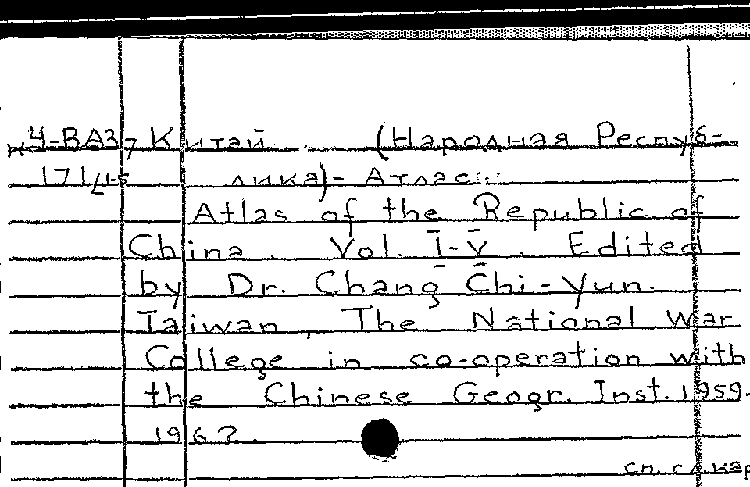 Ч-ВАЗ, Китай (Народная Респуб-
171/15 лика) - Атласы
Atlas of the Republic of
China. Vol. I-V. Edited
by Dr. Chang Chi-Yun.
Taiwan, The National War
College in co-operation with
the Chinese Geogr. Inst. 1959-
1962.
см. сл. кар